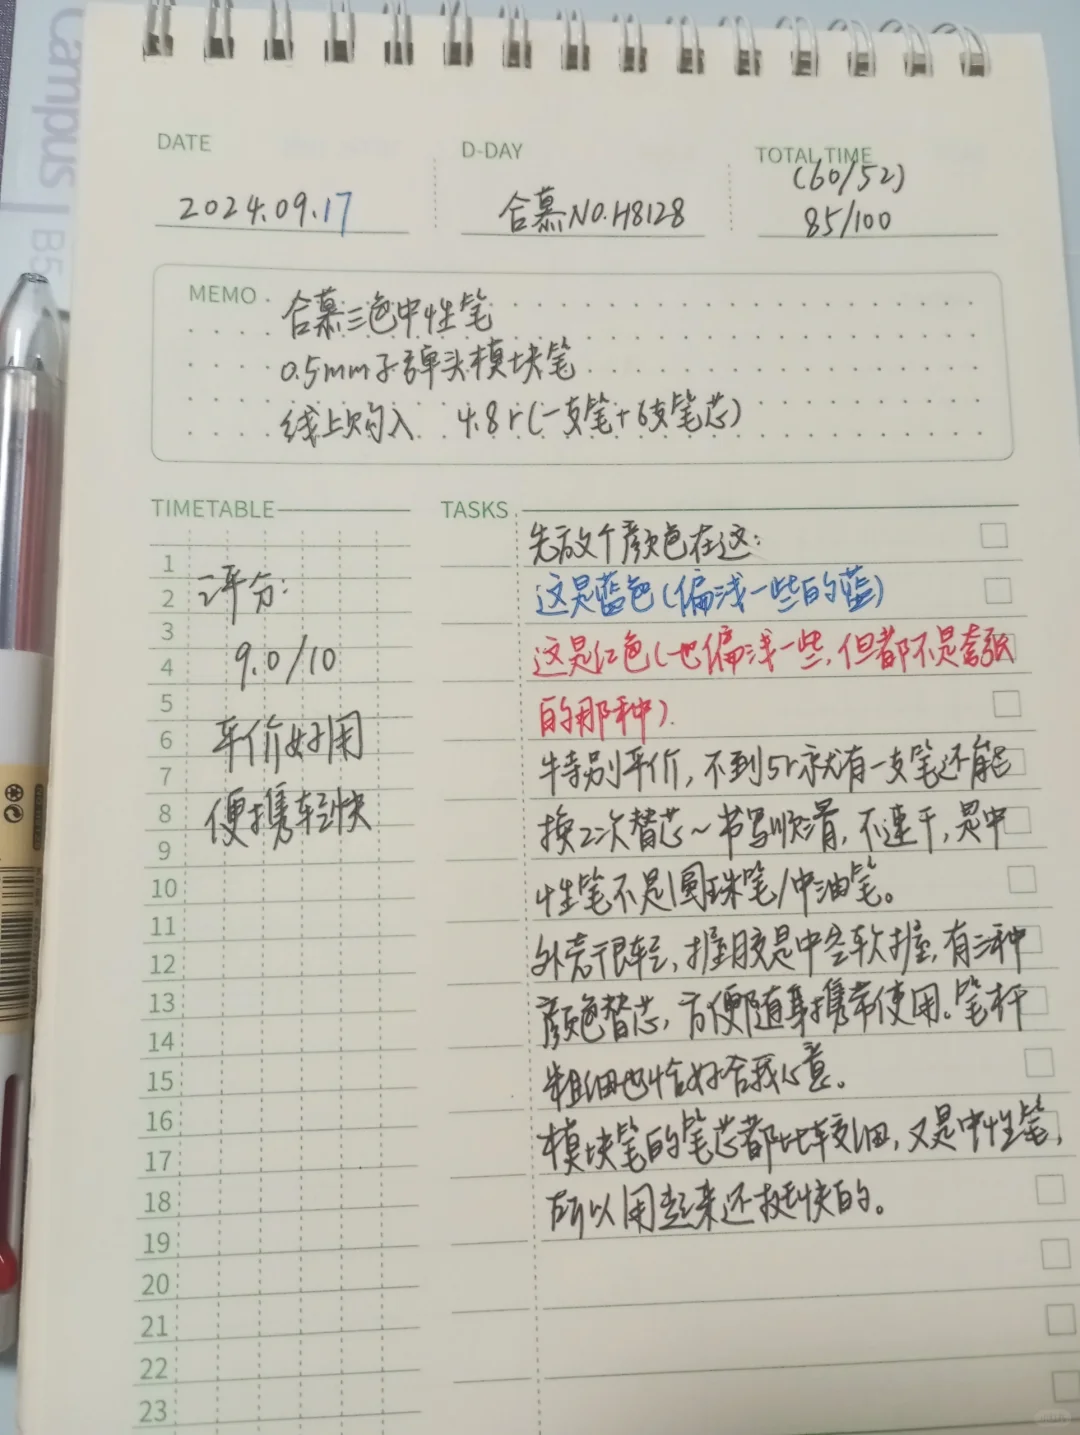 Campus B5
DATE
2024.09.17
D-DAY
合慕NO.H8128
TOTAL TIME
(60/52)
85/100
MEMO
合慕三色中性笔
0.5mm子弹头模块笔
线上购入 4.8r(一支笔+6支笔芯)
TIMETABLE
1
2
3
4
5
6
7
8
9
10
11
12
13
14
15
16
17
18
19
20
21
22
23
评分:
9.0/10
平价好用
便携轻快
TASKS
先放个颜色在这:
这是蓝色(偏浅一些的蓝)
这是红色(也偏浅一些,但都不是夸张
的那种).
特别平价,不到5r就有一支笔还能
换2次替芯~书写顺滑,不速干,是中
性笔不是圆珠笔/中油笔。
外壳很轻,握胶是中空软握,有三种
颜色替芯,方便随身携带使用。笔杆
粗细也恰好合我心意。
模块笔的笔芯都比较细,又是中性笔,
所以用起来还挺快的。